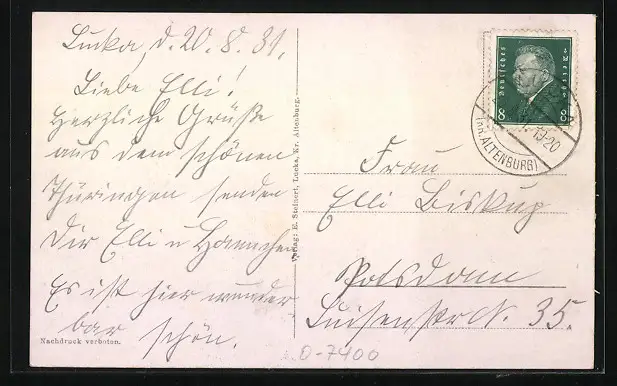 Lucka, d. 20.8.31.
Liebe Elli!
Herzliche Grüße
aus dem schönen
Thüringen senden
Dir Elli u Hannchen
Es ist hier wunder
bar schön.
Nachdruck verboten.
Verlag: E. Steinert, Lucka, Kr. Altenburg.
Deutsches Reich
8 8
19-20
(KR. ALTENBURG)
Frau
Elli Biskup
Potsdam
Luisenstr. 35.
D-7400